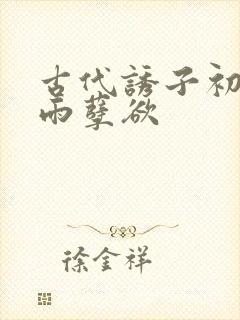 古代誘子初
雨孽欲
徐金祥